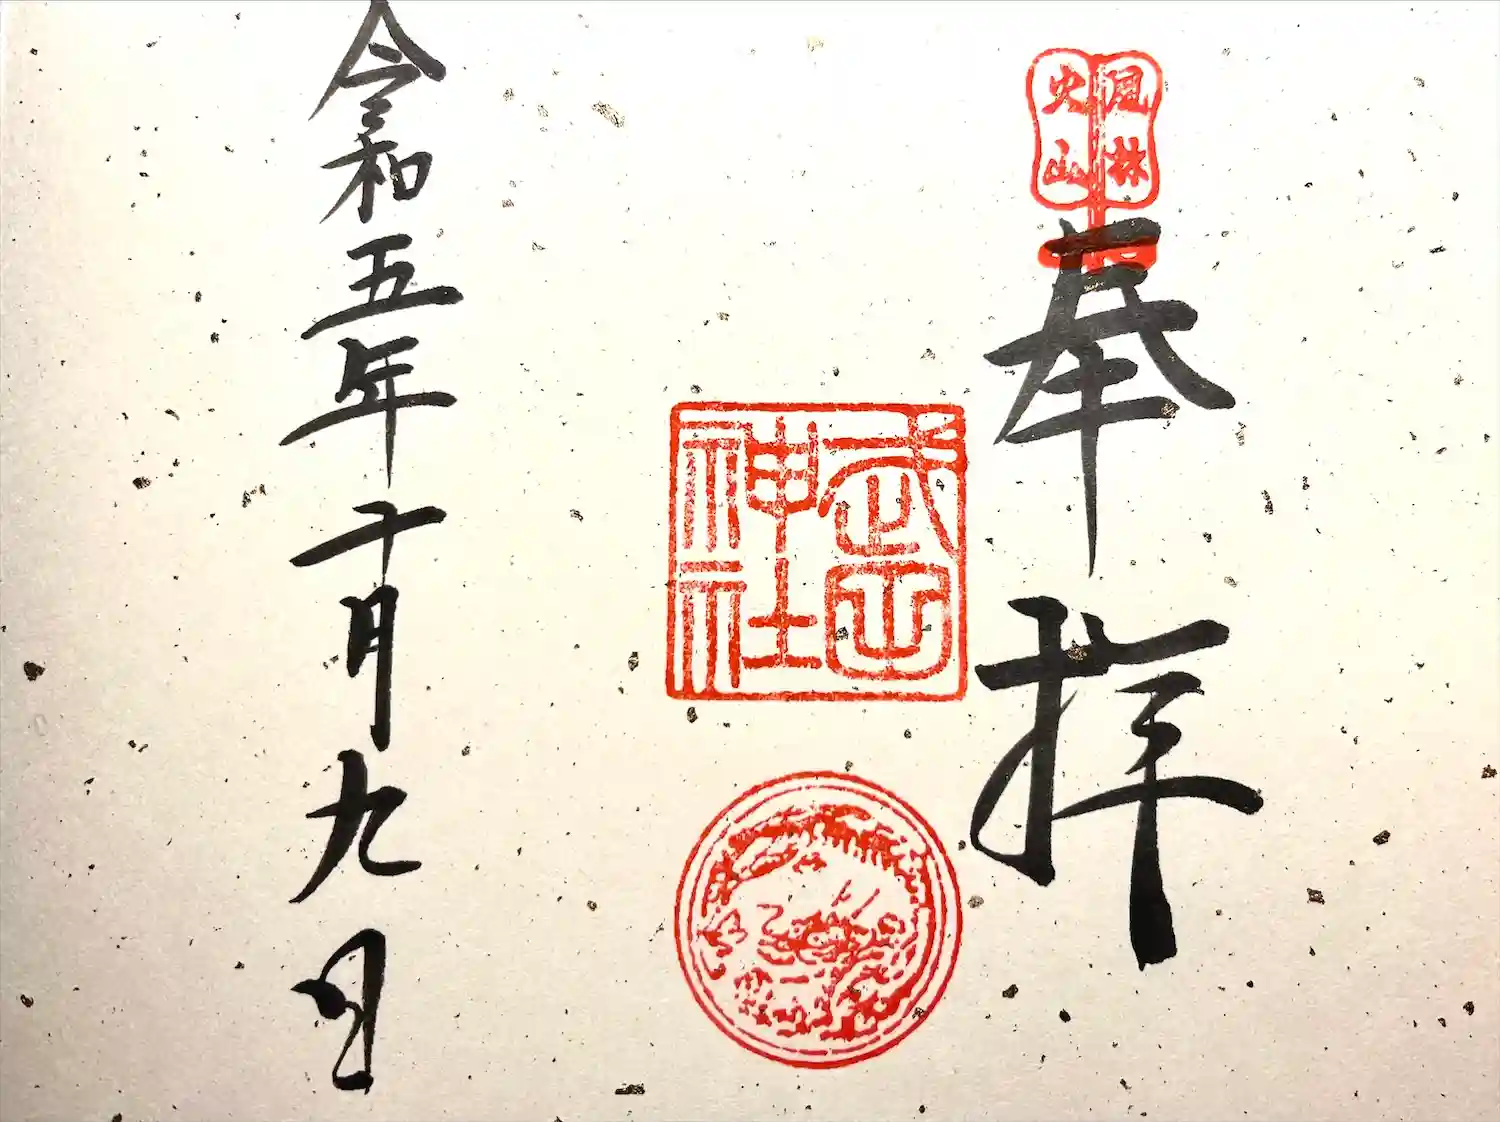 風林
火山
奉拝
武田
神社
令和五年十月九日